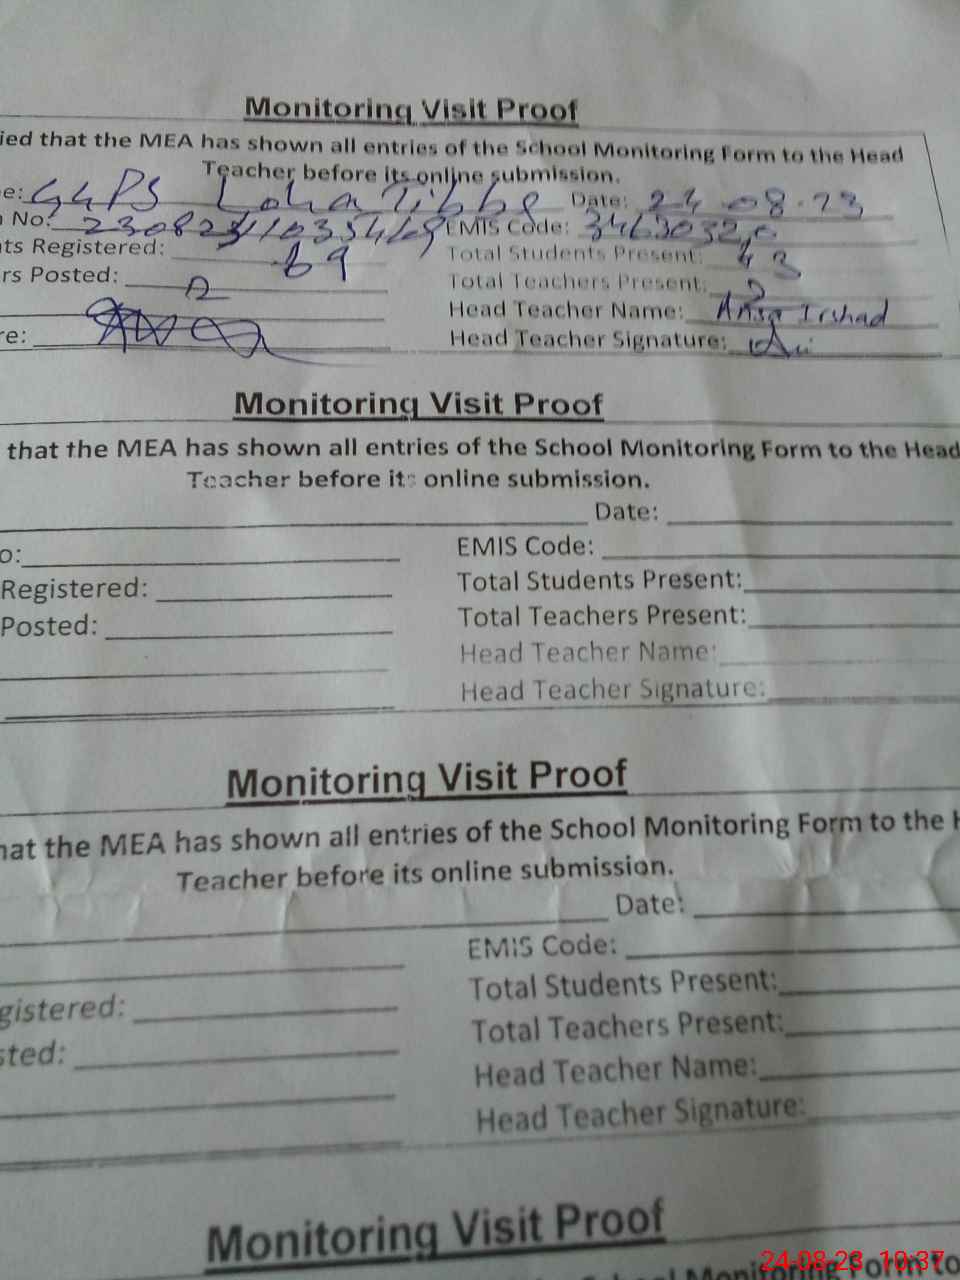 Monitoring Visit Proof
ied that the MEA has shown all entries of the School Monitoring Form to the Head
Teacher before its online submission.
e: GGPS Loha Tibba Date: 24-08-23
No: EMIS Code:
ts Registered: 69 Total Students Present: 43
rs Posted: 2 Total Teachers Present: 2
Head Teacher Name: Ansa Irshad
re: Head Teacher Signature:
Monitoring Visit Proof
that the MEA has shown all entries of the School Monitoring Form to the Head
Teacher before its online submission.
Date:
o: EMIS Code:
Registered: Total Students Present:
Posted: Total Teachers Present:
Head Teacher Name:
Head Teacher Signature:
Monitoring Visit Proof
hat the MEA has shown all entries of the School Monitoring Form to the H
Teacher before its online submission.
Date:
EMIS Code:
gistered: Total Students Present:
sted: Total Teachers Present:
Head Teacher Name:
Head Teacher Signature:
Monitoring Visit Proof
School Monitoring Form to
24-08-23 10:37